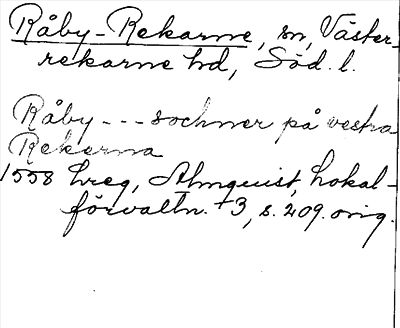 Råby-Rekarne, sn, Väster-
rekarne hd, Söd. l.
Råby --- sochner på vestra
Rekarna
1558 hreg, Almquist, Lokal-
förvaltn. +3, s. 209. orig.